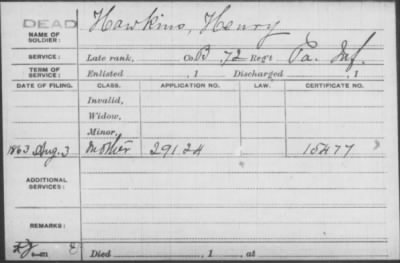 DEAD
NAME OF SOLDIER: Hawkins, Henry
SERVICE: Late rank, Co. B 72 Reg't Pa. Inf.
TERM OF SERVICE: Enlisted , 1 Discharged , 1
DATE OF FILING. CLASS. APPLICATION NO. LAW. CERTIFICATE NO.
Invalid,
Widow,
Minor,
1863 Aug. 3 Mother 29124 15477
ADDITIONAL SERVICES:
REMARKS:
Died , 1 , at